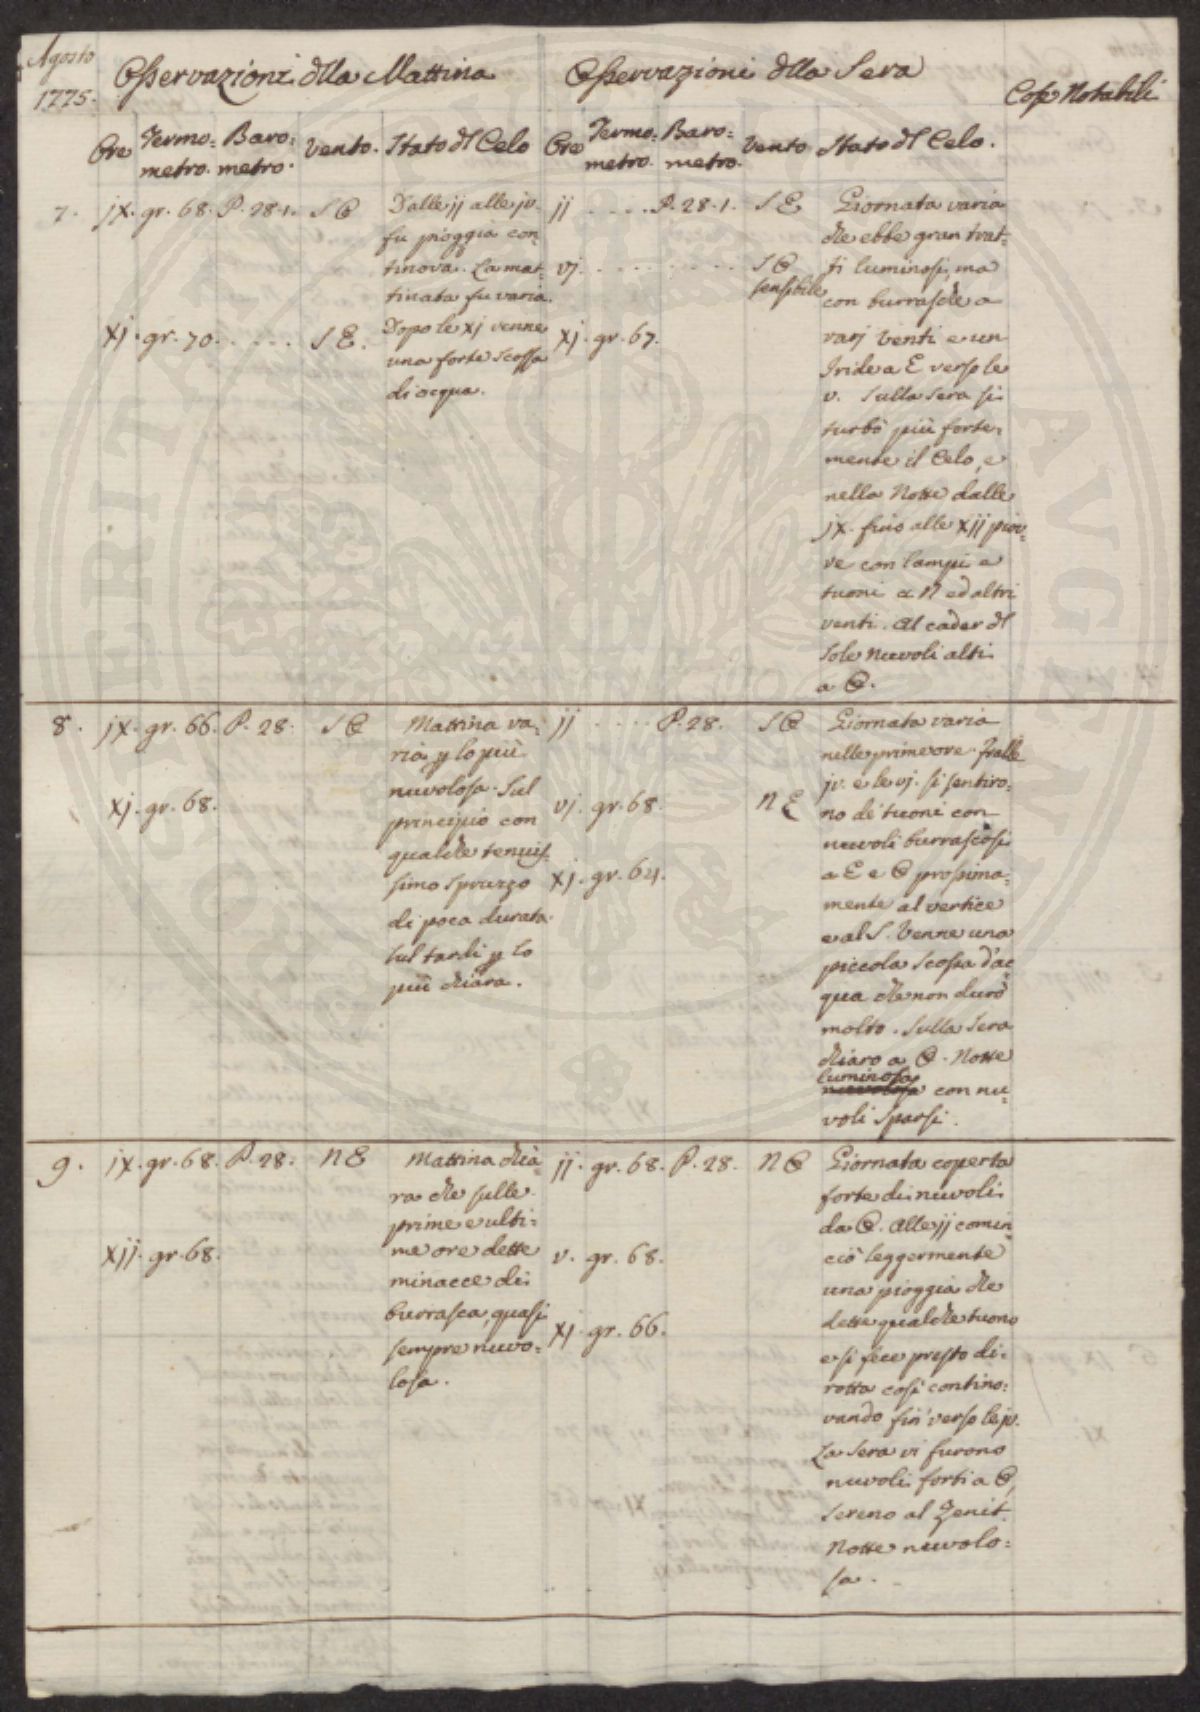 Agosto
1775.
Osservazioni dlla Mattina
Osservazioni dlla Sera
Cose Notabili
Ore Termo: Baro: Vento. Stato dl Celo
metro. metro.
Ore Termo: Baro: Vento Stato dl Celo.
metro. metro.
7. jx. gr. 68. P. 28.1. S O
Dalle jj alle jv.
fu pioggia con
tinova. La mat:
tinata fu varia.
xj. gr. 70. . . . . . S E.
Dopo le xj venne
una forte scossa
di acqua.
jj . . . . P. 28.1. S E
vj. . . . . . . . . . S O
sensibile
xj. gr. 67.
Giornata varia
che ebbe gran trat:
ti luminosi, ma
con burrasche a
varj venti e un
Iride a E verso le
v. Sulla sera si
turbò più forte:
mente il Celo, e
nella Notte dalle
jx. fino alle xjj piov:
ve con lampi e
tuoni a N ed altri
venti. Al cader dl
Sole nuvoli alti
a O.
8. jx. gr. 66. P. 28. S O
Mattina va:
ria p lo più
nuvolosa. Sul
principio con
qualche tenuis
simo spruzzo
di poca durata.
Sul tardi p lo
più chiara.
xj. gr. 68.
jj . . . . P. 28. S O
vj. gr. 68. N E
xj. gr. 64.
Giornata varia
nelle prime ore. Tralle
jv. e le vj. si sentiro:
no de' tuoni con
nuvoli burrascosi
a E e O prossima:
mente al vertice
e al S. Venne una
piccola scossa d'ac
qua che non durò
molto. Sulla sera
chiaro a O. Notte
luminosa
nuvolosa con nu:
voli sparsi.
9. jx. gr. 68. P. 28. N E
Mattina chia:
ra che sulle
prime e ulti:
me ore dette
minacce di
burrasca, quasi
sempre nuvo:
losa.
xjj. gr. 68.
jj. gr. 68. P. 28. N O
v. gr. 68.
xj. gr. 66.
Giornata coperta
forte di nuvoli
da O. Alle jj comin
ciò leggermente
una pioggia che
dette qualche tuono
e si fece presto di:
rotta così contino:
vando fin' verso le jv.
La sera vi furono
nuvoli forti a O,
sereno al Zenit.
Notte nuvolo:
sa.